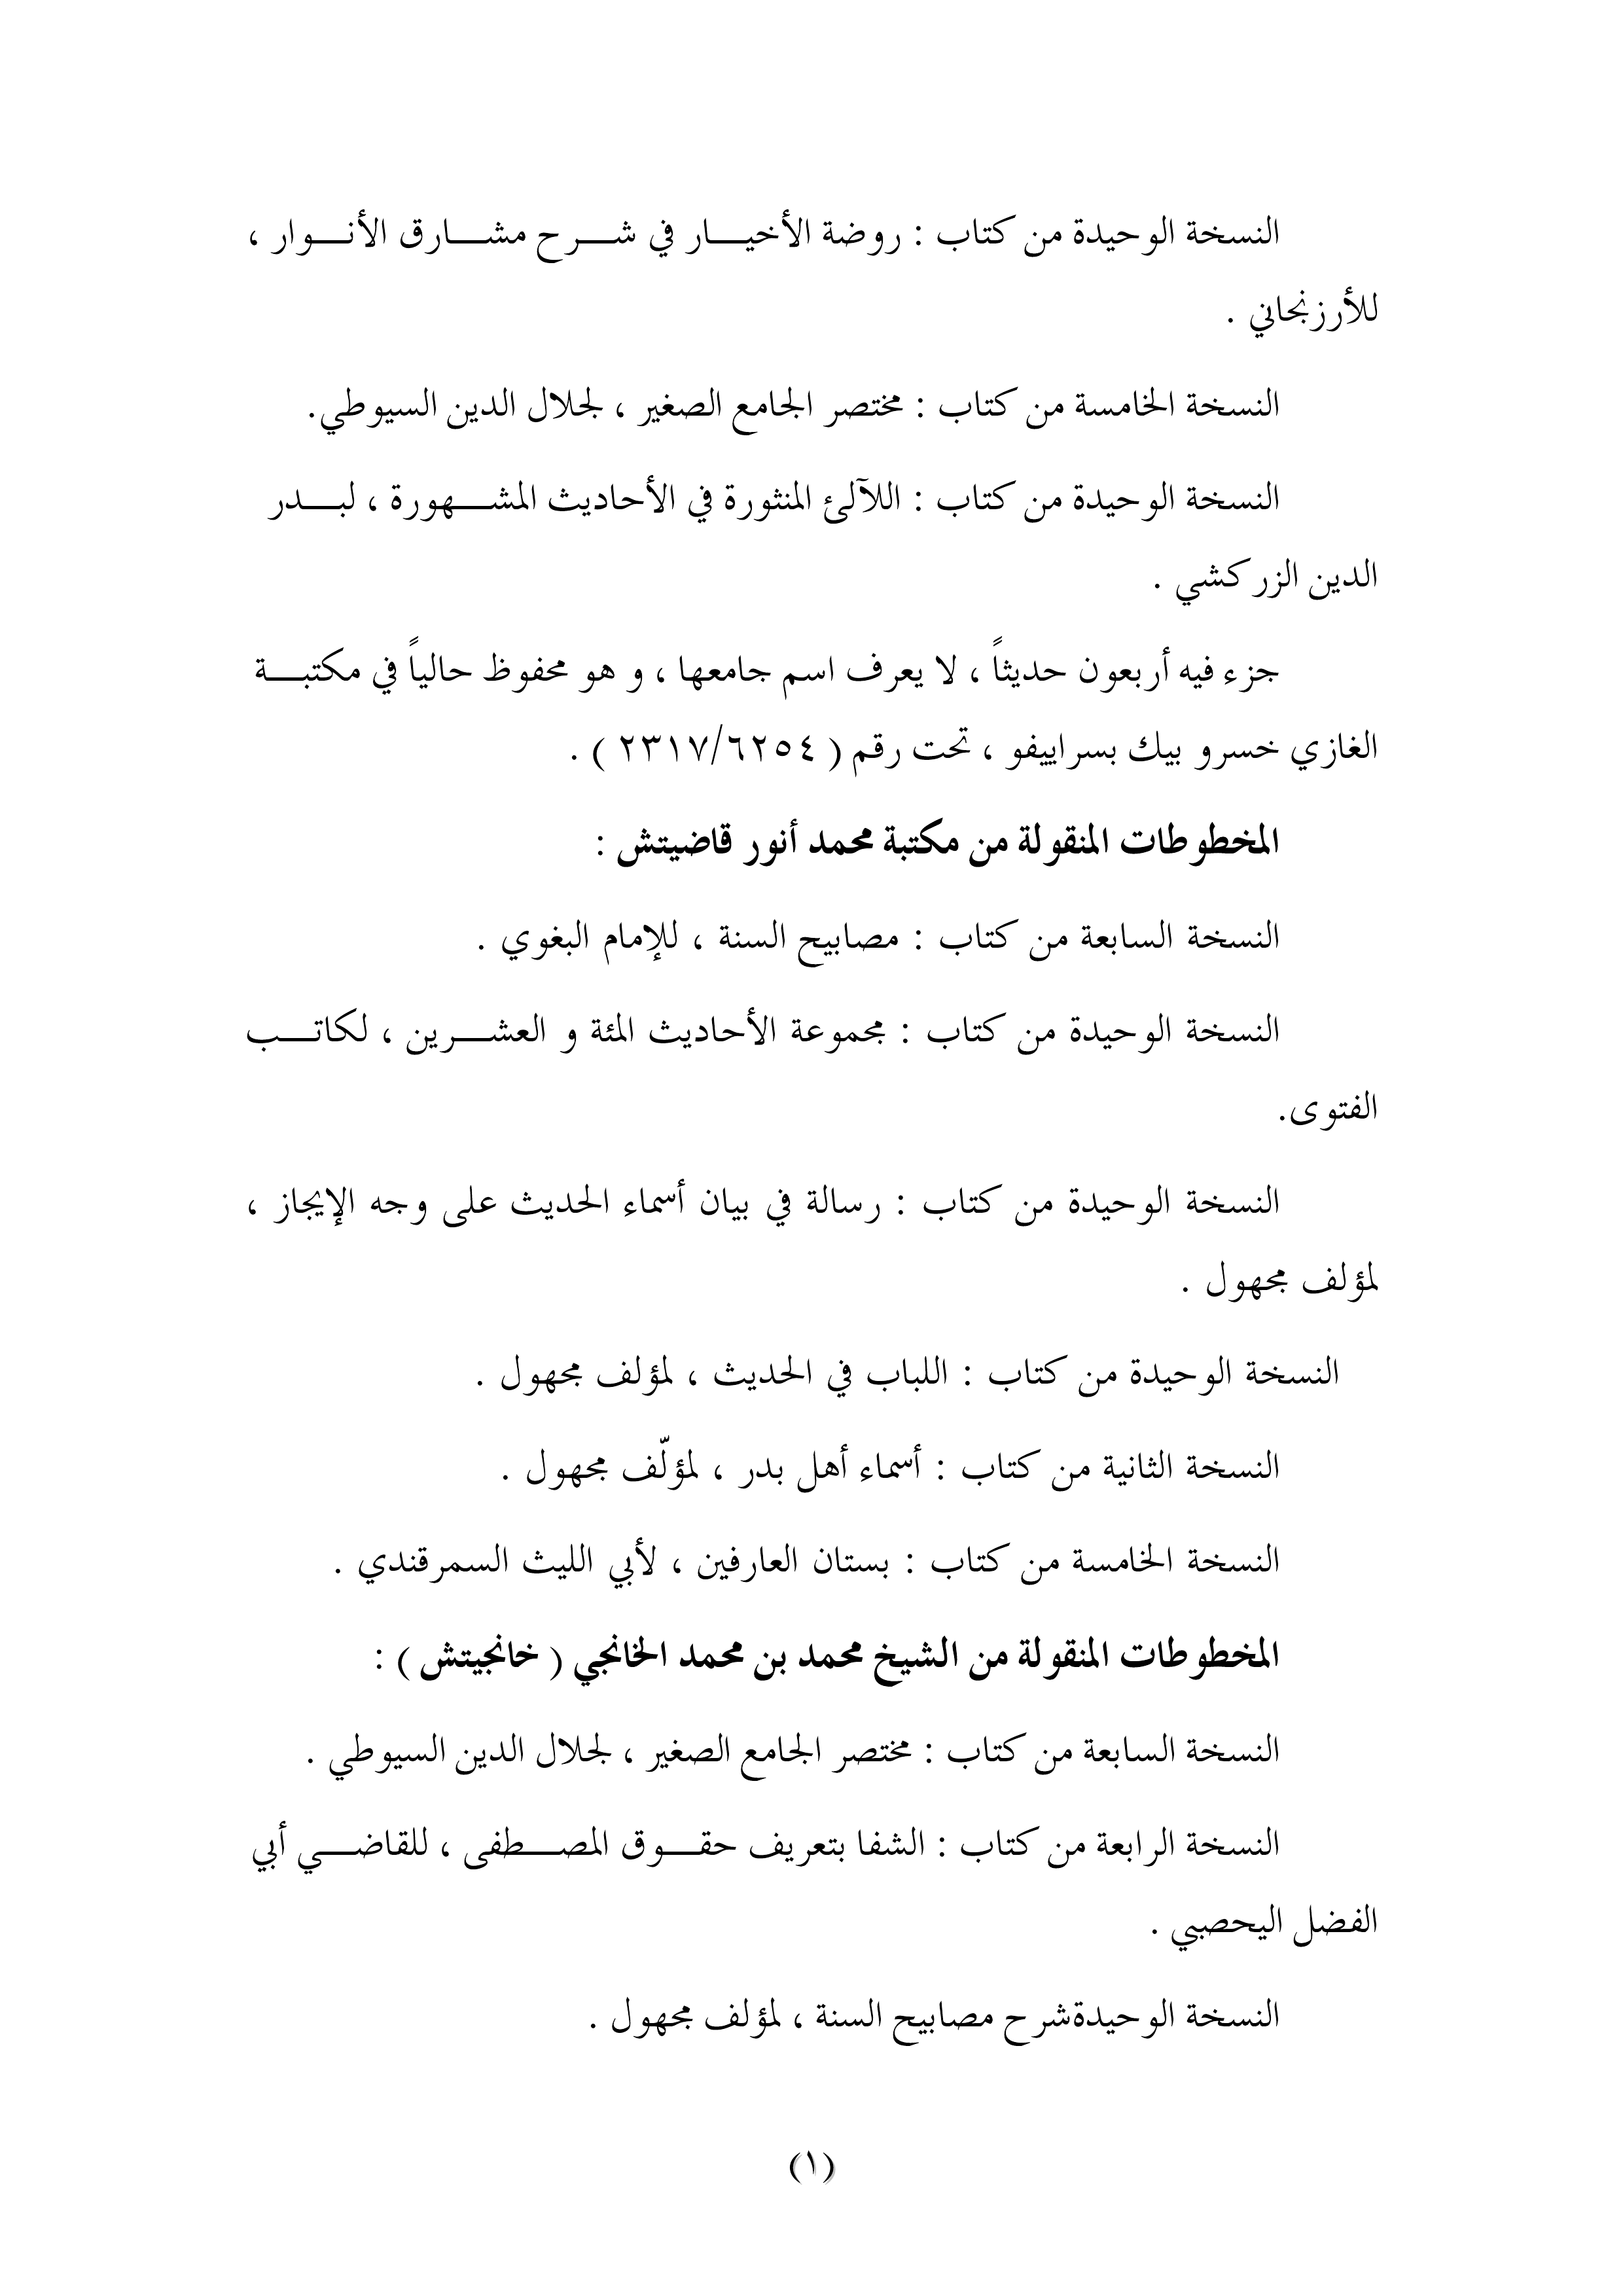 النسخة الوحيدة من كتاب : روضة الأخيار في شرح مشارق الأنوار ،
للأرزنجاني .
النسخة الخامسة من كتاب : مختصر الجامع الصغير ، لجلال الدين السيوطي.
النسخة الوحيدة من كتاب : اللآلئ المنثورة في الأحاديث المشهورة ، لبدر
الدين الزركشي .
جزء فيه أربعون حديثاً ، لا يعرف اسم جامعها ، و هو محفوظ حالياً في مكتبة
الغازي خسرو بيك بسراييفو ، تحت رقم ( ٢٣١٧/٦٢٥٤ ) .
المخطوطات المنقولة من مكتبة محمد أنور قاضيتش :
النسخة السابعة من كتاب : مصابيح السنة ، للإمام البغوي .
النسخة الوحيدة من كتاب : مجموعة الأحاديث المئة و العشرين ، لكاتب
الفتوى.
النسخة الوحيدة من كتاب : رسالة في بيان أسماء الحديث على وجه الإيجاز ،
لمؤلف مجهول .
النسخة الوحيدة من كتاب : اللباب في الحديث ، لمؤلف مجهول .
النسخة الثانية من كتاب : أسماء أهل بدر ، لمؤلّف مجهول .
النسخة الخامسة من كتاب : بستان العارفين ، لأبي الليث السمرقندي .
المخطوطات المنقولة من الشيخ محمد بن محمد الخانجي ( خانجيتش ) :
النسخة السابعة من كتاب : مختصر الجامع الصغير ، لجلال الدين السيوطي .
النسخة الرابعة من كتاب : الشفا بتعريف حقوق المصطفى ، للقاضي أبي
الفضل اليحصبي .
النسخة الوحيدةشرح مصابيح السنة ، لمؤلف مجهول .
(١)